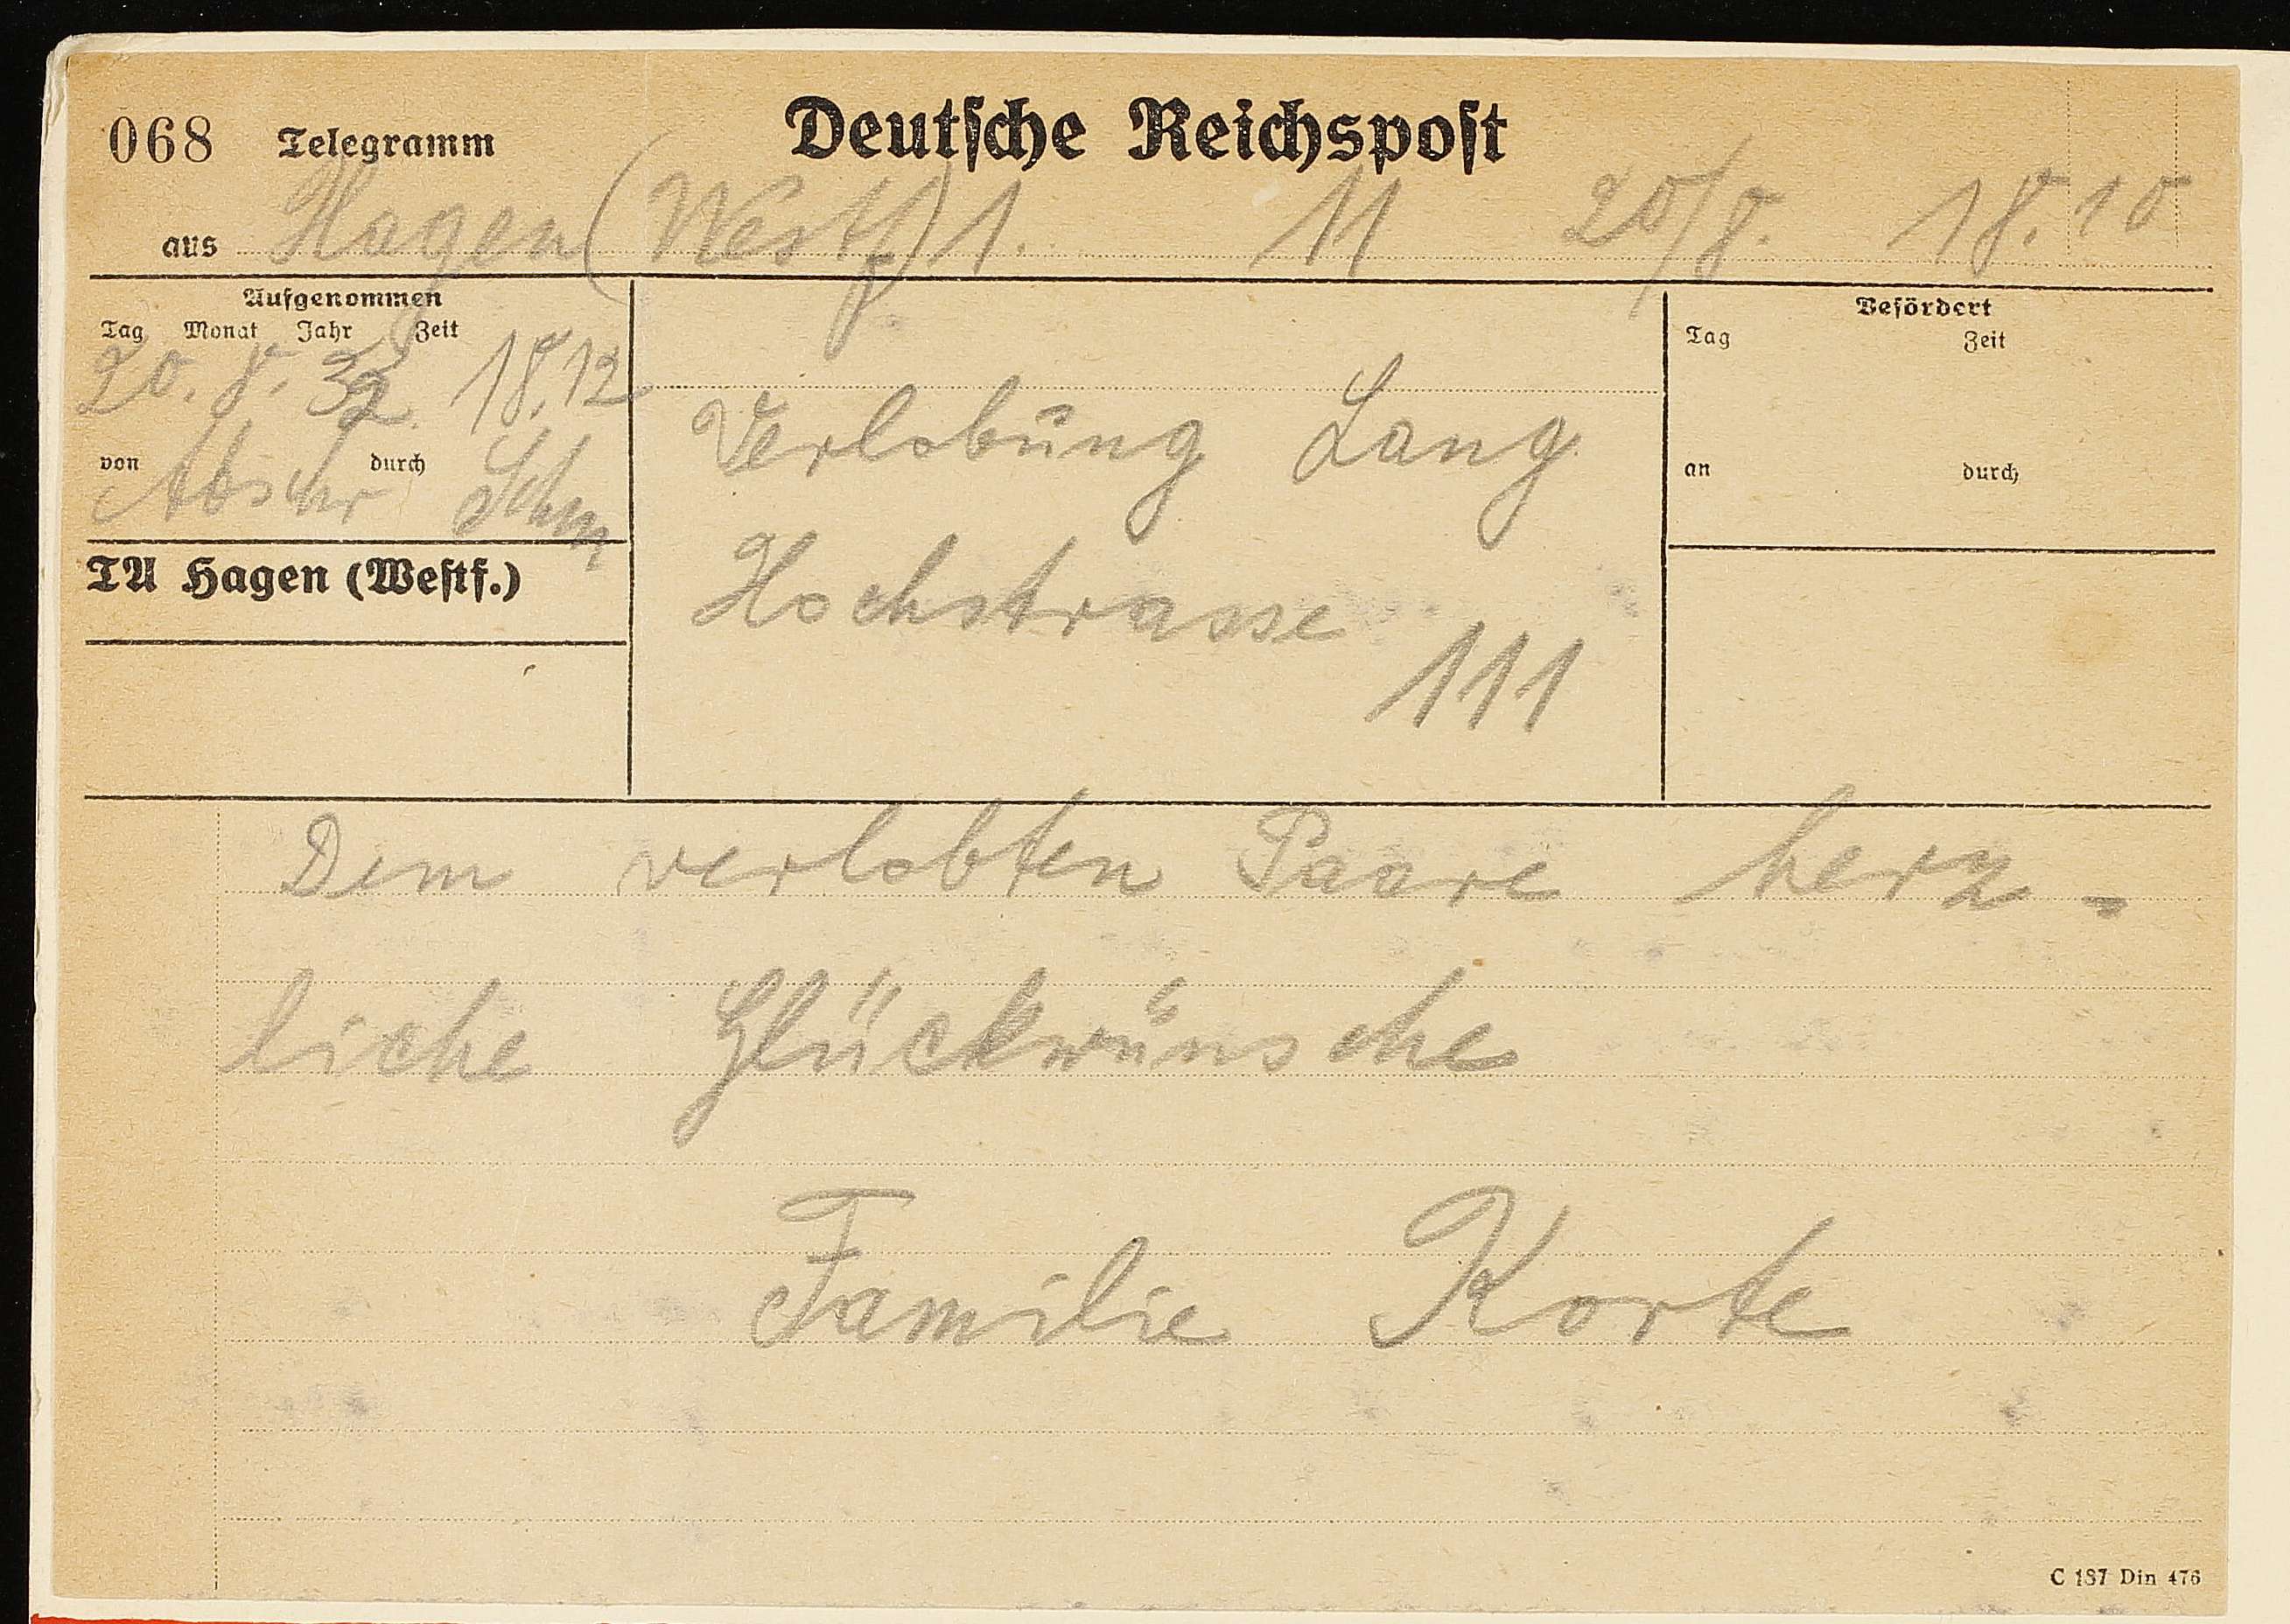 068 Telegramm Deutsche Reichspost
aus Hagen (Westf) 1. 11 20/8. 18.10
Aufgenommen
Tag Monat Jahr Zeit
20. 8. 32. 18.12
von durch
Abschr Schm
TA Hagen (Westf.)
Verlobung Lang
Hochstrasse
111
Befördert
Tag Zeit
an durch
Dem verlobten Paare herz-
liche Glückwünsche
Familie Korte
C 187 Din 476